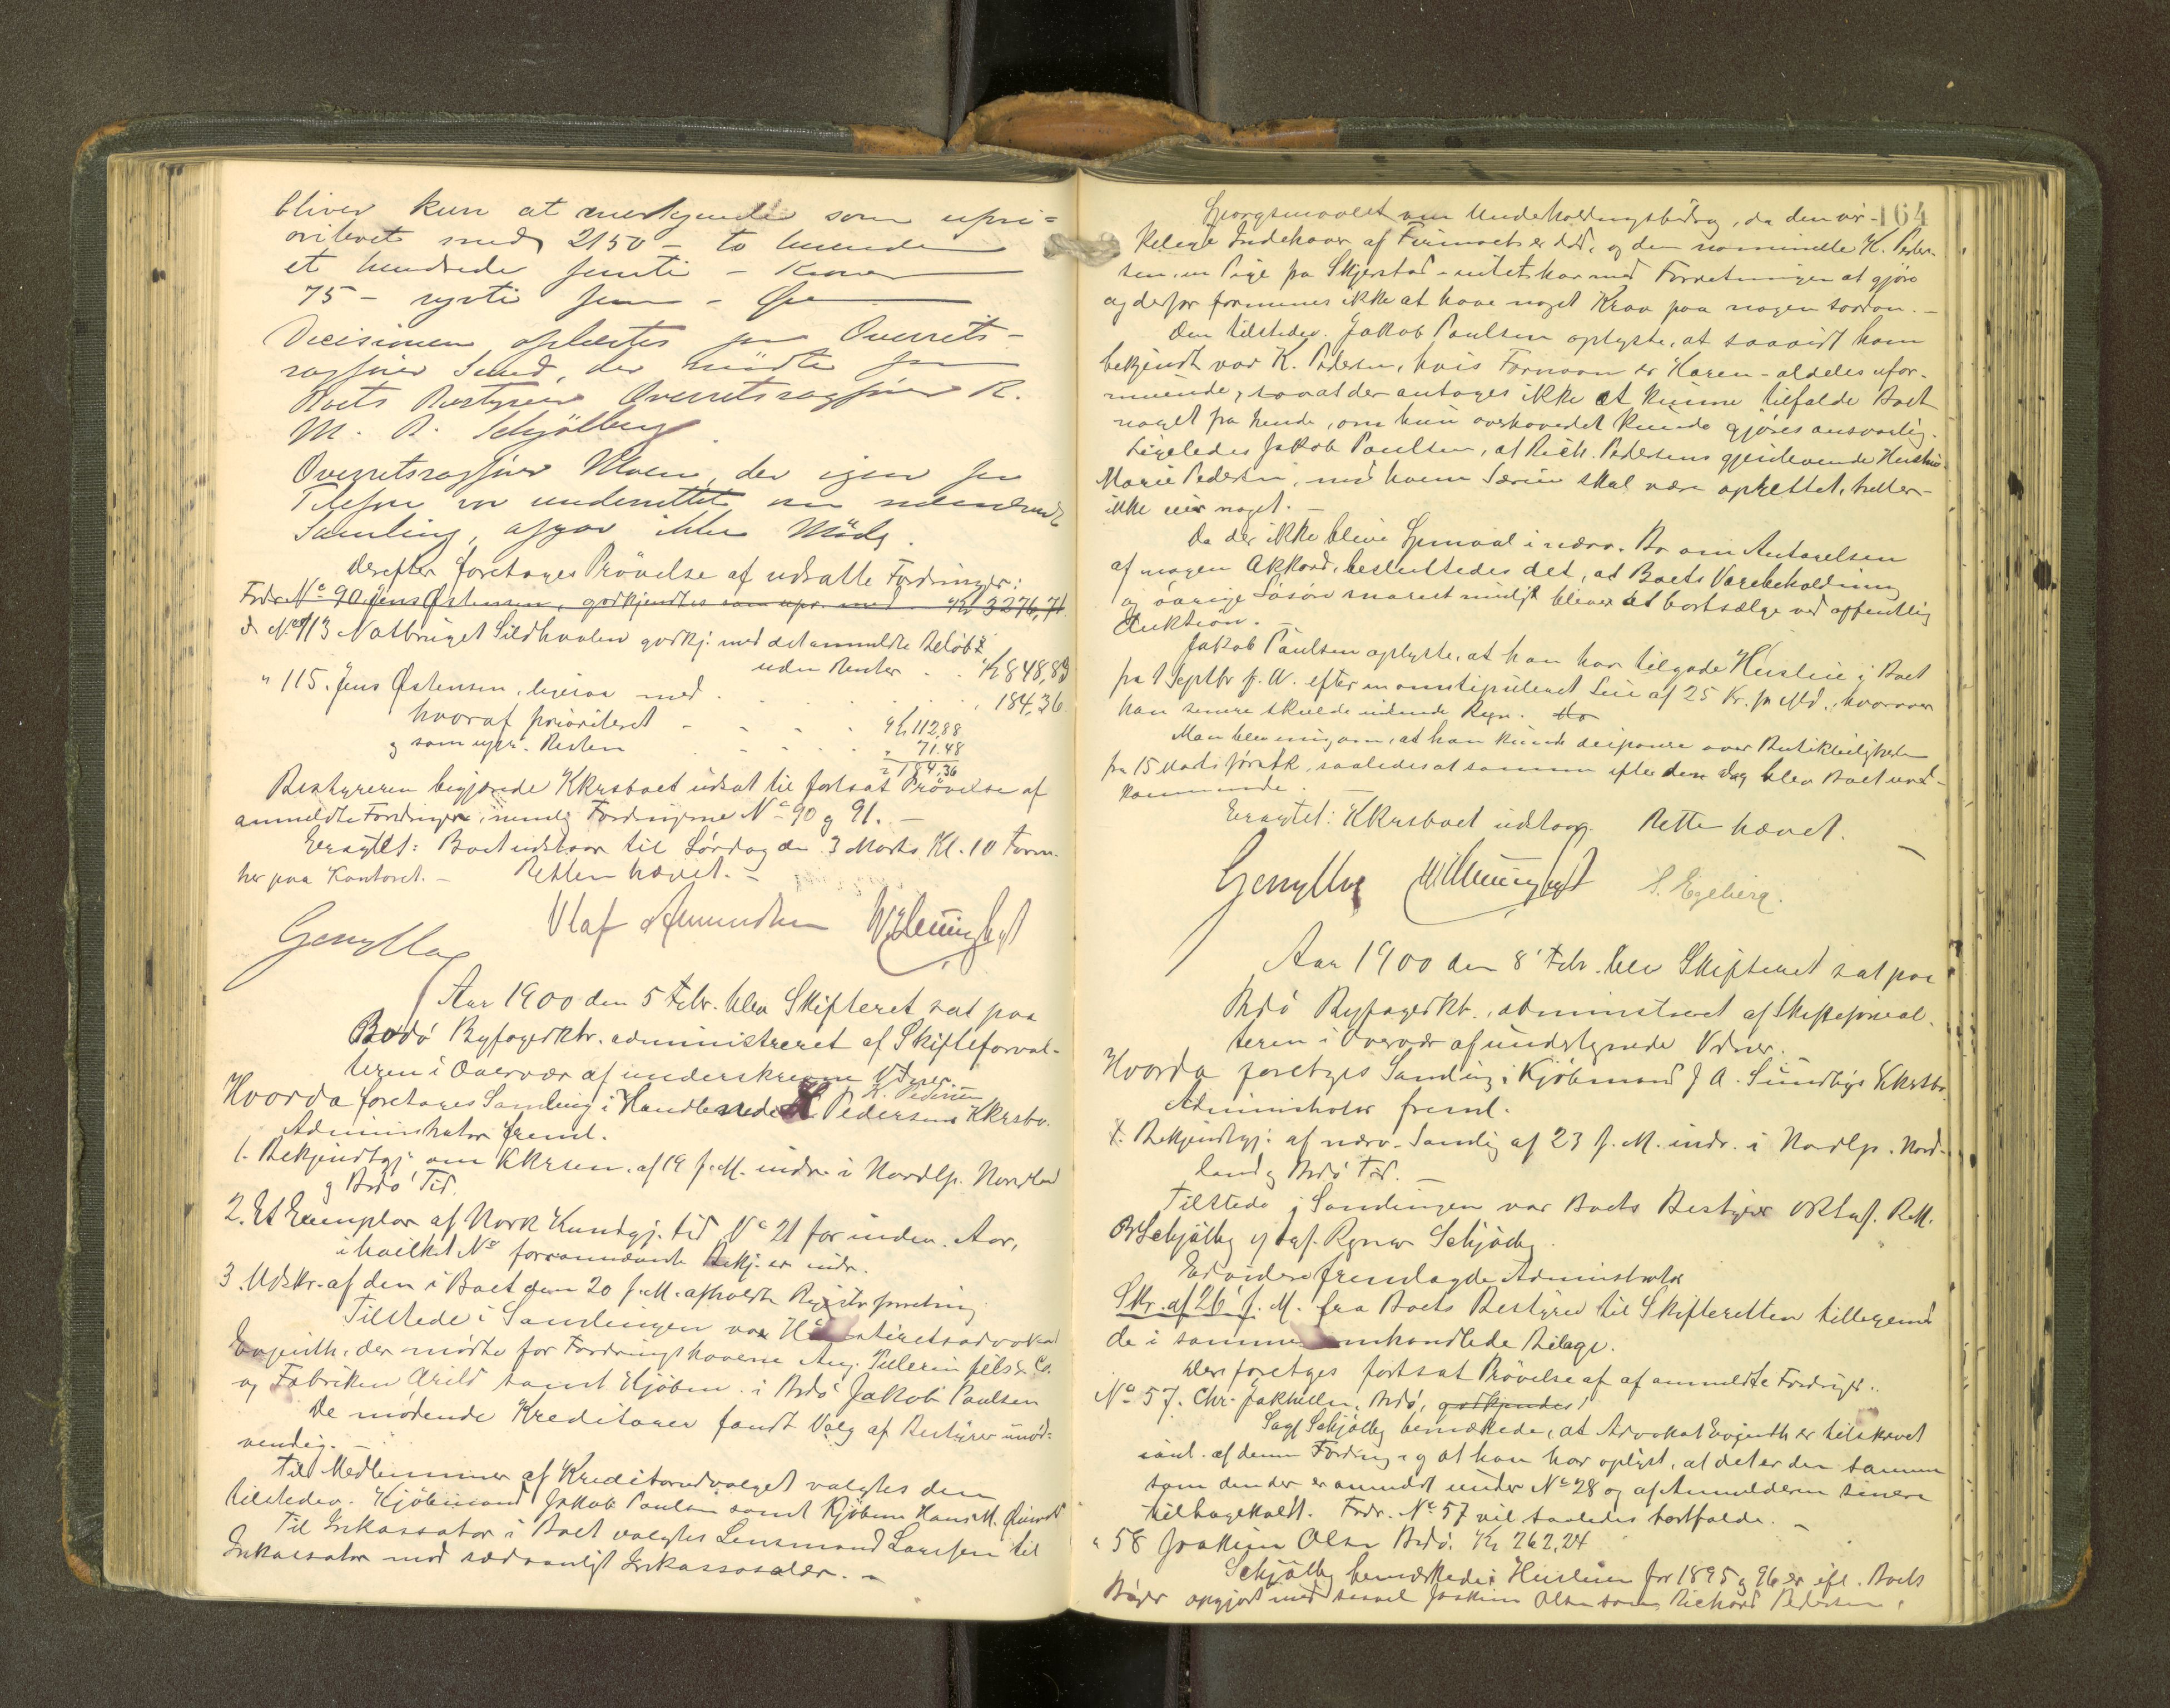 bliver kun at anerkjende som upri=
oriteret med 2150 - to tusende
et hundrede femti - Kroner
75 - sytti fem - Øre
Decisionen oplæstes for Overrets-
sagfører Sund, der mødte for
Boets Bestyrer Overretssagfører R.
M. B. Schjölberg.
Overretssagfører Moen, der igen pr
Telefon var underrettet om nærværende
Samling, afgav ikke Möde.
Derefter foretoges Prövelse af udsatte Fordringer:
Fordr. No 90 Jens Østensen, godkjendtes som upr. med Kr 3276,71.
d No 113 Notbruget Sildhvalen godkj. med det anmeldte Beløb
uden Renter . . Kr 848,83
" 115. Jens Østensen, ligesaa med . . . . . . 184,36
hvoraf prioriteret - - - - Kr 112,88
og som upri. Resten - - - - " 71.48
" 184,36
Bestyreren begjærede Kkrsboet udsat til fortsat Prövelse af
anmeldte Fordringer, nemlig Fordringerne No 90 og 91. -
Eragtet: Boet udstaar til Lørdag den 3 Marts Kl. 10 Form.
her paa Kontoret. - Retten hævet. -
Olaf Amundsen
Aar 1900 den 5 Febr. blev Skifteret sat paa
Bodö Byfogedktr. administreret af Skifteforval-
teren i Overvær af underskrevne Vidner.
K. Pedersen
Hvorda foretoges Samling i Handlende Pedersens Kkrsbo.
Administrator freml.
1. Bekjendtgj. om Kkrsen. af 19 f. M. indr. i Nordlp. Nordland
og Bodö Tid.
2. Et Exemplar af Norsk Kundgj. tid No 21 for inden. Aar,
i hvilket No forannævnte Bekj. er indr.
3. Udskr. af den i Boet den 20 f. M. afholdte Registr. forretning
Tilstede i Samlingen var Höiesteretsadvokat
Evjenth, der mødte for Fordringshaverne Aug. Pellerin fils & Co.
og Fabriken Arild samt Kjøbm. i Bodö Jakob Paulsen
De mødende Kreditorer fandt Valg af Bestyrer unöd-
vendig. -
Til Medlemmer af Kreditorudvalget valgtes den
tilstedev. Kjöbmand Jakob Paulsen samt Kjöbm. Hans M.
Til Inkassator i Boet valgtes Lensmand Larssen til
Inkassator mod sædvanligt Inkassosalær. -
164
Spørgsmaalet om Underholdningsbidrag, da den vir-
kelige Indehaver af Firmaet er död, og den nominelle K. Peder-
sen, en Pige fra Skjerstad - intet har med Forretningen at gjöre
og derfor formenes ikke at have noget Krav paa nogen saadan. -
Den tilstedev. Jakob Paulsen oplyste, at saavidt ham
bekjendt var K. Pedersen, hvis Fornavn er Karen - aldeles ufor-
muende, saa at der antages ikke at kunne tilfalde Boet
noget fra hende, om hun overhovedet kunde gjöres ansvarlig.
Ligeledes Jakob Paulsen, at Rich. Pedersens gjenlevende Hustru
Marie Pedersen, med hvem Særeie skal være oprettet, heller-
ikke eier noget. -
Da der ikke bliver Spørsmaal i nærv. Bo om Antagelsen
af nogen Akkord, besluttedes det, at Boets Varebeholdning
og øvrige Lösöre snarest muligt bliver at bortsælge ved offentlig
Auktion. -
Jakob Paulsen oplyste, at han har tilgode Husleie i Boet
fra 1 Septbr f. A. efter en omstipuleret Leie af 25 Kr. pr Md., hvorover
han senere skulde indsende Regn.
Man blev enig om, at han kunde disponere over Butikleiligheden
fra 15 Marts förstk., saaledes at samme efter den Dag blev Boet uved-
kommende.
Eragtet: Kkrsboet udstaar. Retten hævet.
S. Egeberg.
Aar 1900 den 8' Febr. blev Skifteret sat paa
Bodö Byfogedktr., administreret af Skifteforval-
teren i Overvær af undertegnede Vidner.
Hvorda foretoges Samling i Kjöbmand J. A. Sundbys Kkrsbo.
Administrator freml.
1. Bekjendtgj. af nærv. Samlig af 23 f. M. indr. i Nordlp. Nord-
land og Bodö Tid. -
Tilstede i Samlingen var Boets Bestyrer ORsagf. R. M.
B. Schjölbg og sagf. Ragnar Schjölbg.
Endvidere fremlagde Administrator
Skr. af 26' f. M. fra Boets Bestyrer til Skifteretten tilligemed
de i samme omhandlede Bilage.
Der foretoges fortsat Prövelse af af anmeldte Fordringer.
No 57. Chr. Jakhelln, Bodö, godkjendes
Sagf Schjölbg bemærkede, at Advokat Evjenth er tilskrevet
ianl. af denne Fordring og at han har oplyst, at det er den samme
som den der er anmeldt under No 28 og af Anmelderen senere
tilbagekaldt. Fordr. No 57 vil saaledes bortfalde. -
" 58 Joakim Olsen Bodö. Kr 262,24
Schjölbg bemærkede: Husleien for 1895 og 96 er ifl. Boets
Böger opgjort med saavel Joakim Olsen som Richard Pedersen,